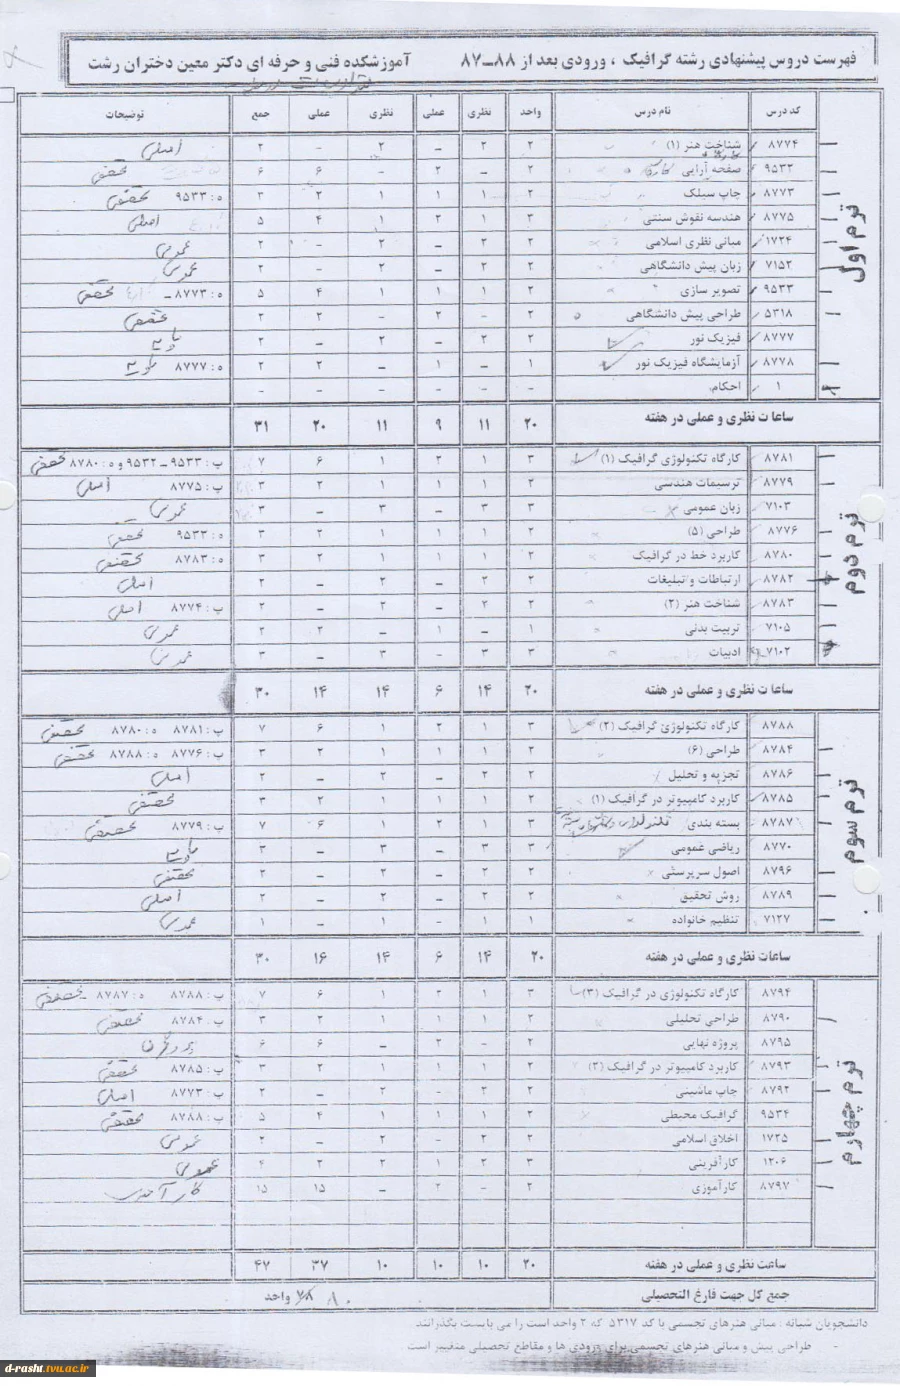 آموزشکده فنی و حرفه ای دکتر معین دختران رشت فهرست دروس پیشنهادی رشته گرافیک ، ورودی بعد از ۸۸-۸۷
کد درس نام درس واحد نظری عملی نظری عملی جمع توضیحات
ترم اول
۸۷۷۴ شناخت هنر (۱) ۲ ۲ – ۲ – ۲ اصلی
۹۵۳۲ صفحه آرایی ۲ – ۲ – ۶ ۶ تخصصی
۸۷۷۳ چاپ سیلک ۲ ۱ ۱ ۱ ۲ ۳ ه : ۹۵۳۳ تخصصی
۸۷۷۵ هندسه نقوش سنتی ۳ ۱ ۲ ۱ ۴ ۵ اصلی
۱۷۲۴ مبانی نظری اسلامی ۲ ۲ – ۲ – ۲ عمومی
۷۱۵۲ زبان پیش دانشگاهی ۲ ۲ – ۲ – ۲ عمومی
۹۵۳۳ تصویر سازی ۲ ۱ ۱ ۱ ۴ ۵ ه : ۸۷۷۳ – تخصصی
۵۳۱۸ طراحی پیش دانشگاهی ۲ – ۲ – ۲ ۲ تخصصی
۸۷۷۷ فیزیک نور ۲ ۲ – ۲ – ۲ پایه
۸۷۷۸ آزمایشگاه فیزیک نور ۱ – ۱ – ۲ ۲ ه : ۸۷۷۷ پایه
۱ احکام – – – – – –
ساعات نظری و عملی در هفته ۲۰ ۱۱ ۹ ۱۱ ۲۰ ۳۱
ترم دوم
۸۷۸۱ کارگاه تکنولوژی گرافیک (۱) ۳ ۱ ۲ ۱ ۶ ۷ پ : ۹۵۳۳ – ۹۵۳۲ و ه : ۸۷۸۰ تخصصی
۸۷۷۹ ترسیمات هندسی ۲ ۱ ۱ ۱ ۲ ۳ پ : ۸۷۷۵ اصلی
۷۱۰۳ زبان عمومی ۳ ۳ – ۳ – ۳ عمومی
۸۷۷۶ طراحی (۵) ۲ ۱ ۱ ۱ ۲ ۳ ه : ۹۵۳۳ تخصصی
۸۷۸۰ کاربرد خط در گرافیک ۲ ۱ ۱ ۱ ۲ ۳ ه : ۸۷۸۳ تخصصی
۸۷۸۲ ارتباطات و تبلیغات ۲ ۲ – ۲ – ۲ اصلی
۸۷۸۳ شناخت هنر (۲) ۲ ۲ – ۲ – ۲ پ : ۸۷۷۴ اصلی
۷۱۰۵ تربیت بدنی ۱ – ۱ – ۲ ۲ عمومی
۷۱۰۲ ادبیات ۳ ۳ – ۳ – ۳ عمومی
ساعات نظری و عملی در هفته ۲۰ ۱۴ ۶ ۱۴ ۱۴ ۳۰
ترم سوم
۸۷۸۸ کارگاه تکنولوژی گرافیک (۲) ۳ ۱ ۲ ۱ ۶ ۷ پ : ۸۷۸۱ ه : ۸۷۸۰ تخصصی
۸۷۸۴ طراحی (۶) ۲ ۱ ۱ ۱ ۲ ۳ پ : ۸۷۷۶ ه : ۸۷۸۸ تخصصی
۸۷۸۶ تجزیه و تحلیل ۲ ۲ – ۲ – ۲ اصلی
۸۷۸۵ کاربرد کامپیوتر در گرافیک (۱) ۲ ۱ ۱ ۱ ۲ ۳ تخصصی
۸۷۸۷ بسته بندی ۳ ۱ ۲ ۱ ۶ ۷ پ : ۸۷۷۹ تخصصی
۸۷۷۰ ریاضی عمومی ۳ ۳ – ۳ – ۳ پایه
۸۷۹۶ اصول سرپرستی ۲ ۲ – ۲ – ۲ تخصصی
۸۷۸۹ روش تحقیق ۲ ۲ – ۲ – ۲ اصلی
۷۱۲۷ تنظیم خانواده ۱ ۱ – ۱ – ۱ عمومی
ساعات نظری و عملی در هفته ۲۰ ۱۴ ۶ ۱۴ ۱۶ ۳۰
ترم چهارم
۸۷۹۴ کارگاه تکنولوژی در گرافیک (۳) ۳ ۱ ۲ ۱ ۶ ۷ پ : ۸۷۸۸ ه : ۸۷۸۷ تخصصی
۸۷۹۰ طراحی تحلیلی ۲ ۱ ۱ ۱ ۲ ۳ پ : ۸۷۸۴ تخصصی
۸۷۹۵ پروژه نهایی ۲ – ۲ – ۶ ۶
۸۷۹۳ کاربرد کامپیوتر در گرافیک (۲) ۲ ۱ ۱ ۱ ۲ ۳ پ : ۸۷۸۵ تخصصی
۸۷۹۲ چاپ ماشینی ۲ ۲ – ۲ – ۲ پ : ۸۷۷۳ اصلی
۹۵۳۴ گرافیک محیطی ۲ ۱ ۱ ۱ ۴ ۵ پ : ۸۷۸۸ تخصصی
۱۷۲۵ اخلاق اسلامی ۲ ۲ – ۲ – ۲ عمومی
۱۲۰۶ کارآفرینی ۳ ۲ ۱ ۲ ۲ ۴ عمومی
۸۷۹۷ کارآموزی ۲ – ۲ – ۱۵ ۱۵ کارآموزی
ساعت نظری و عملی در هفته ۲۰ ۱۰ ۱۰ ۱۰ ۳۷ ۴۷
جمع کل جهت فارغ التحصیلی ۸۰ واحد
دانشجویان شبانه : مبانی هنرهای تجسمی با کد ۵۳۱۷ که ۲ واحد است را می بایست بگذرانند
– طراحی پیش و مبانی هنرهای تجسمی برای ورودی ها و مقاطع تحصیلی متغییر است
d-rasht.tvu.ac.ir